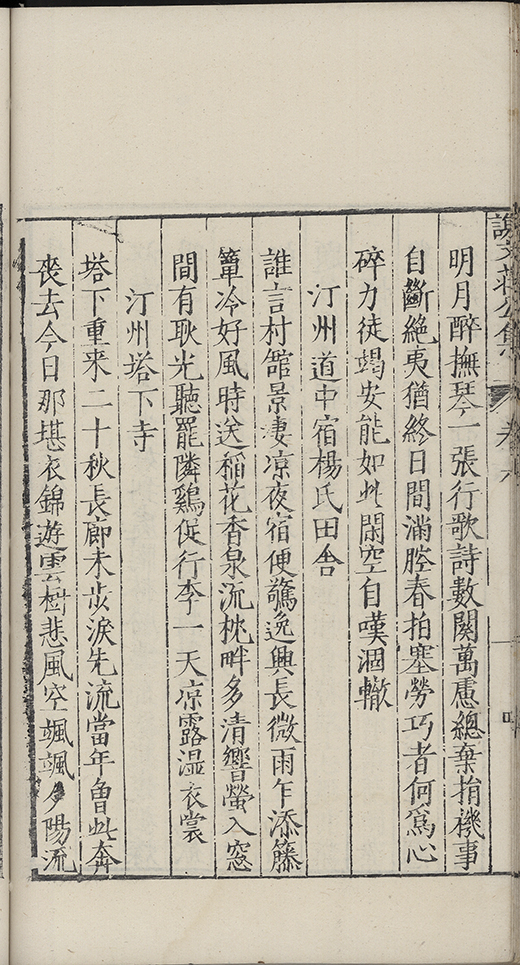 謝文莊公集 卷六
明月醉撫琴一張行歌詩數闋萬慮總棄捐機事
自斷絕夷猶終日間滿腔春拍塞勞巧者何爲心
碎力徒竭安能如此閑空自嘆涸轍
汀州道中宿楊氏田舎
誰言村舘景凄凉夜宿便驚逸興長微雨乍添籐
簟冷好風時送稻花香泉流枕畔多清響螢入窓
間有耿光聽罷隣鷄促行李一天凉露濕衣裳
汀州塔下寺
塔下重来二十秋長廊未步淚先流當年曾此奔
喪去今日那堪衣錦遊雲樹悲風空颯颯夕陽流